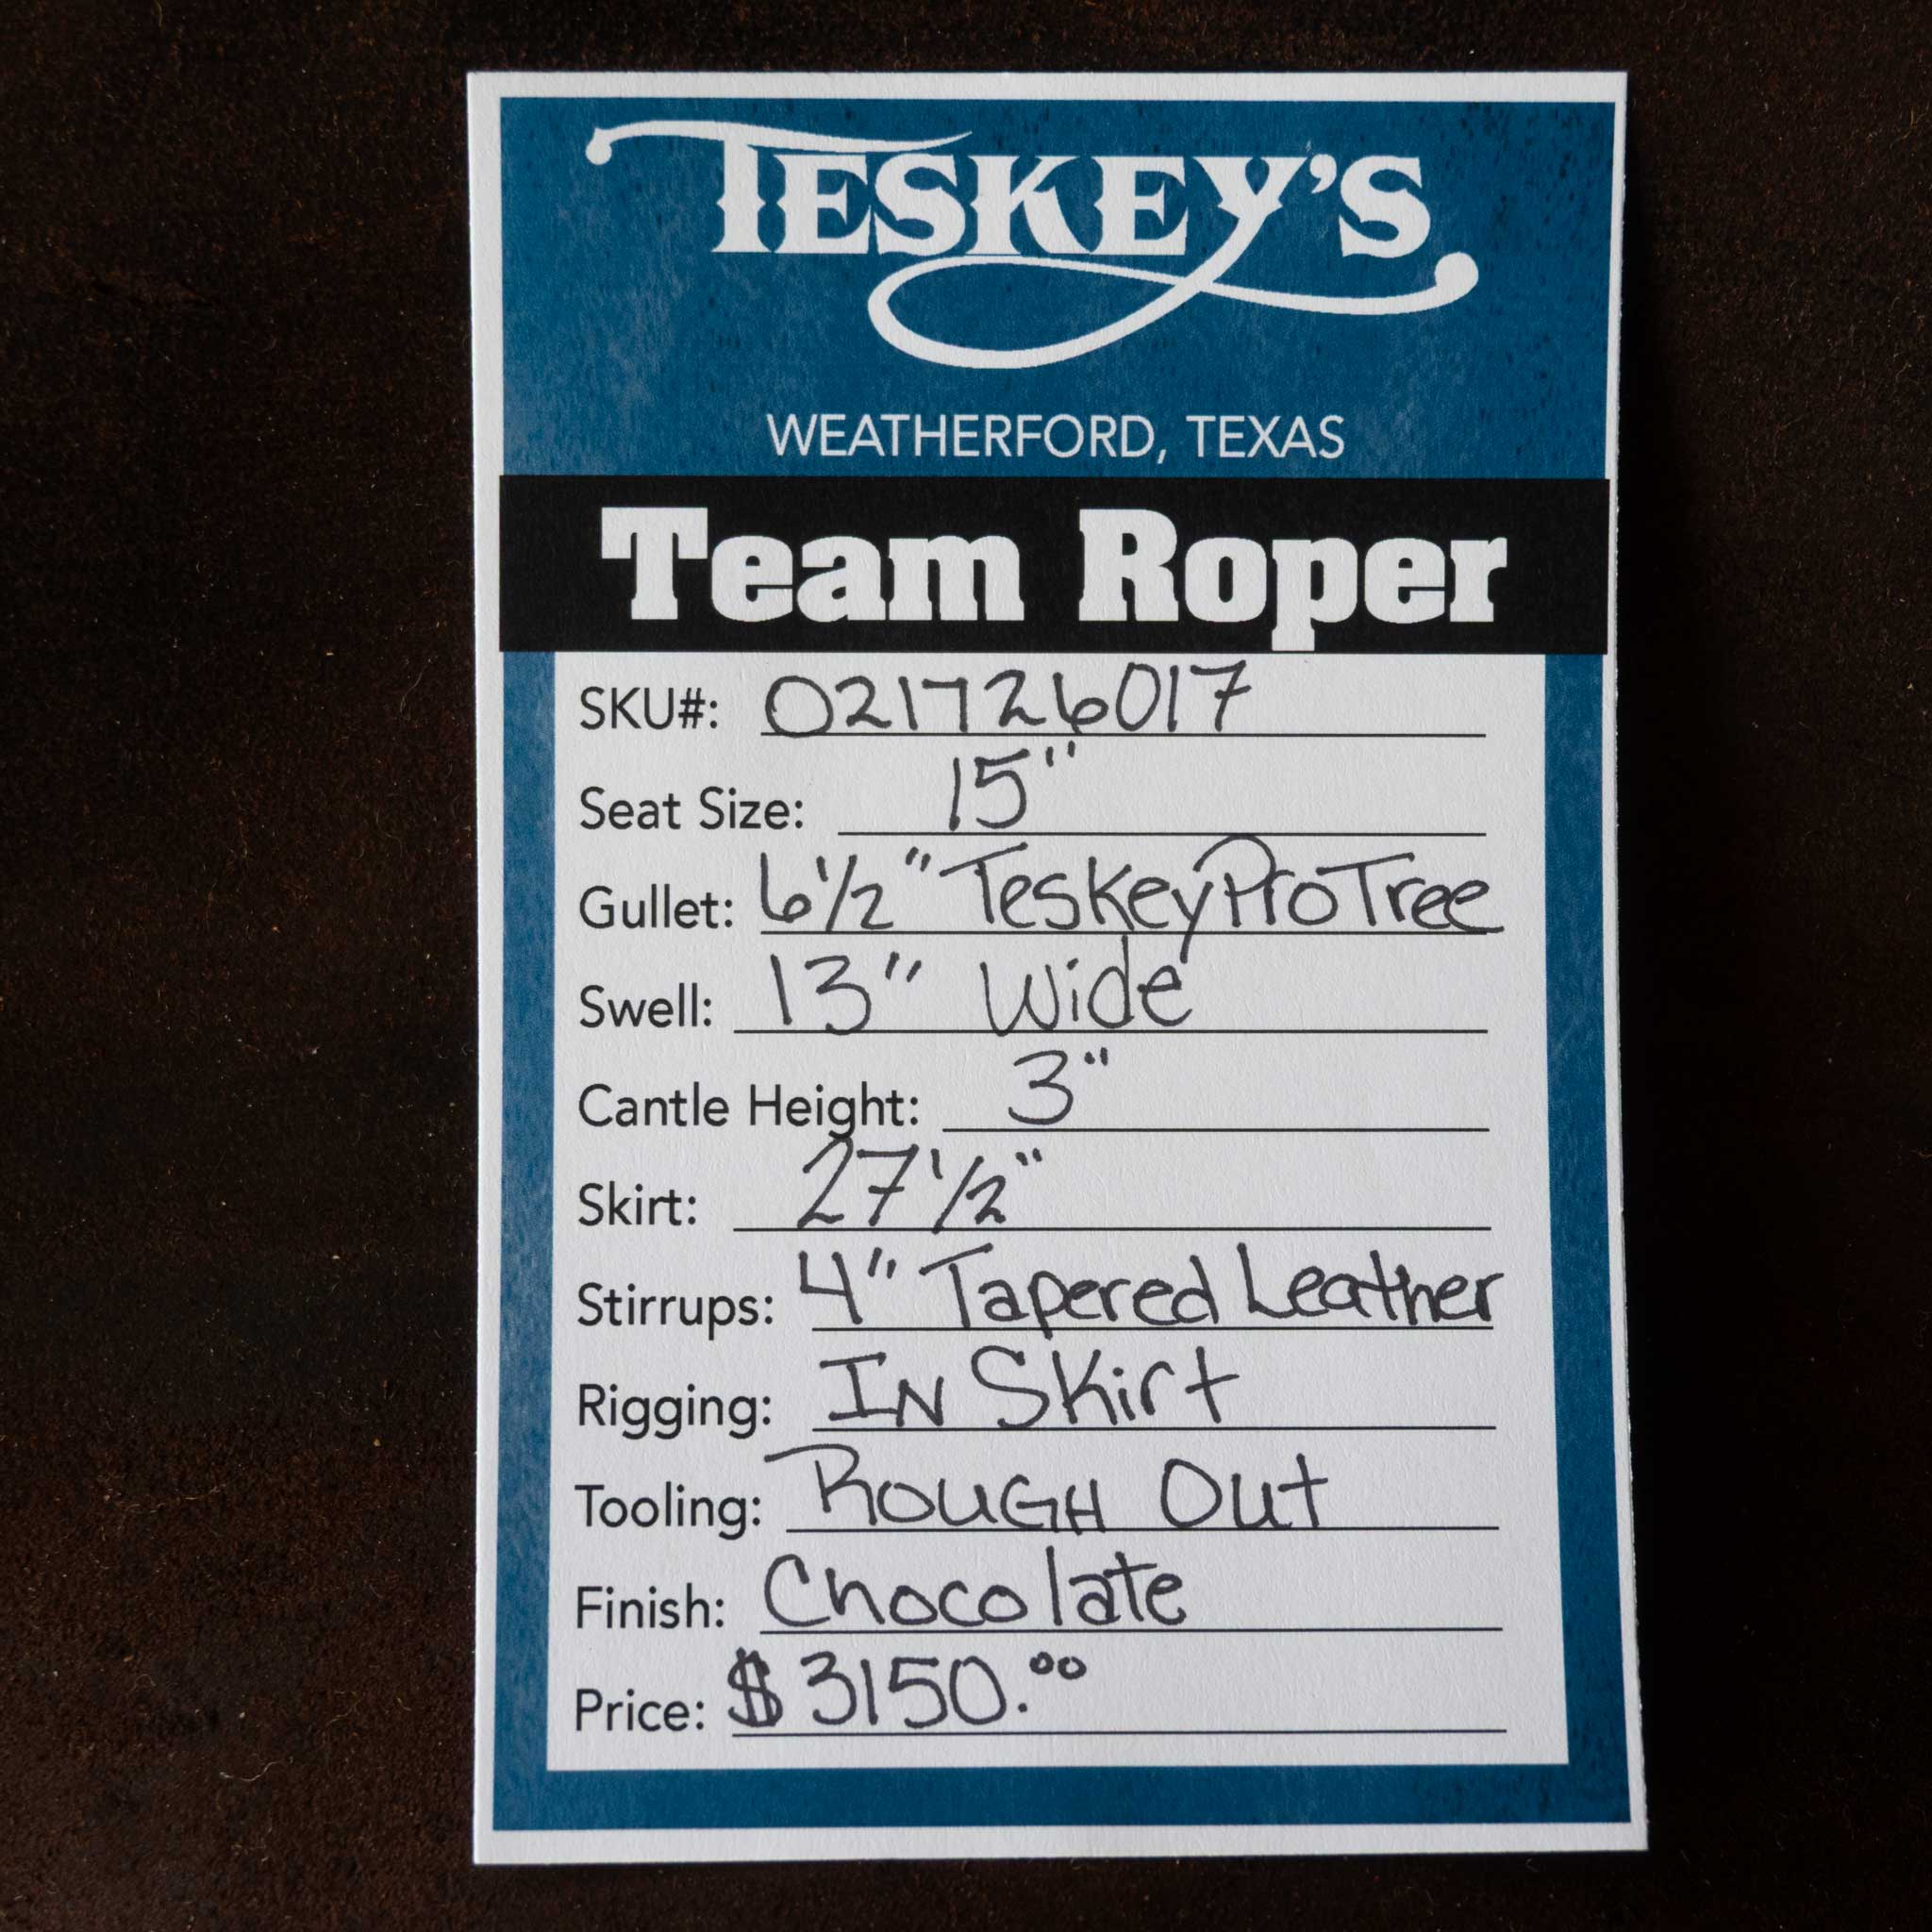 TESKEY'S
WEATHERFORD, TEXAS
Team Roper
SKU#: 021726017
Seat Size: 15"
Gullet: 6 1/2" Teskey Pro Tree
Swell: 13" Wide
Cantle Height: 3"
Skirt: 27 1/2"
Stirrups: 4" Tapered Leather
Rigging: IN Skirt
Tooling: ROUGH Out
Finish: Chocolate
Price: $3150.00